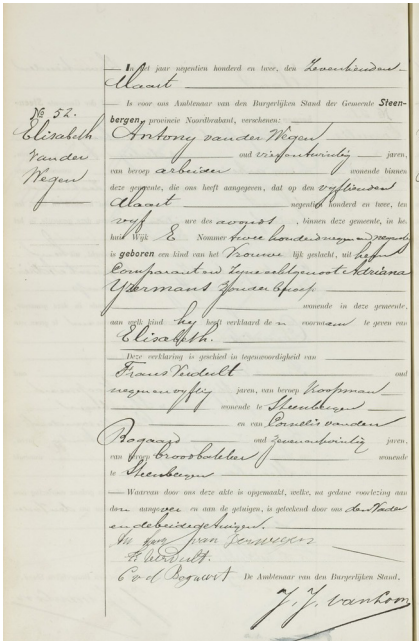 In het jaar negentien honderd en twee, den Zeventienden
Maart
Is voor ons Ambtenaar van den Burgerlijken Stand der Gemeente Steen-
bergen, provincie Noordbrabant, verschenen:
No 52.
Elisabeth
van der
Wegen
Antony van der Wegen
oud vierentwintig jaren,
van beroep arbeider wonende binnen
deze gemeente, die ons heeft aangegeven, dat op den vyftienden
Maart negentien honderd en twee, ten
vyf ure des avonds, binnen deze gemeente, in het
huis Wijk E Nommer twee honderd negen en
is geboren een kind van het Vrouwelijk geslacht, uit hem
Comparant en zyne echtgenoot Adriana
Ypermans zonder beroep
wonende in deze gemeente,
aan welk kind hy heeft verklaard den voornaam te geven van
Elisabeth.
Deze verklaring is geschied in tegenwoordigheid van
Frans Verdult oud
negenenvyftig jaren, van beroep Koopman
wonende te Steenbergen
en van Cornelis van den
Bogaard oud zevenentwintig jaren,
van beroep broodbakker wonende
te Steenbergen
Waarvan door ons deze akte is opgemaakt, welke, na gedane voorlezing aan
den aangever en aan de getuigen, is geteekend door ons den Vader
en de beide getuigen.
van der wegen
F. Verdult.
C v d Bogaert
De Ambtenaar van den Burgerlijken Stand,
J. J. van Loon